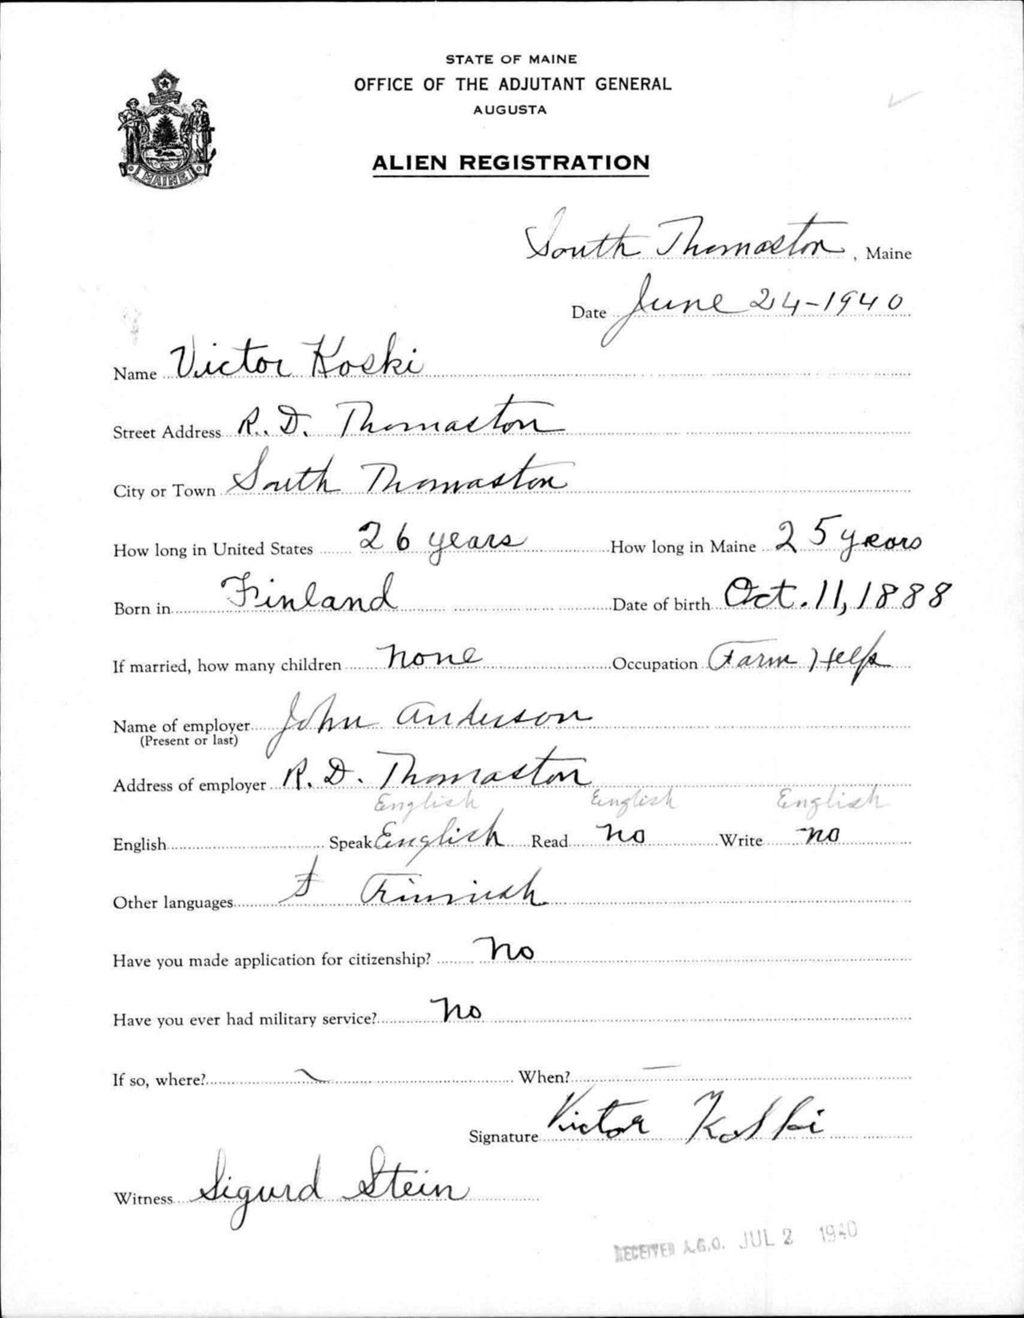 STATE OF MAINE
OFFICE OF THE ADJUTANT GENERAL
AUGUSTA
MAINE
ALIEN REGISTRATION
South Thomaston, Maine
Date June 24-1940
Name Victor Koski
Street Address R. D. Thomaston
City or Town South Thomaston
How long in United States 26 years How long in Maine 25 years
Born in Finland Date of birth Oct. 11, 1888
If married, how many children none Occupation Farm Help
Name of employer John Anderson
(Present or last)
Address of employer R. D. Thomaston
English English English
English Speak English Read no Write no
Other languages F Finnish
Have you made application for citizenship? No
Have you ever had military service? No
If so, where? — When? —
Signature Victor Koski
Witness Sigurd Stein
RECEIVED A.G.O. JUL 2 1940